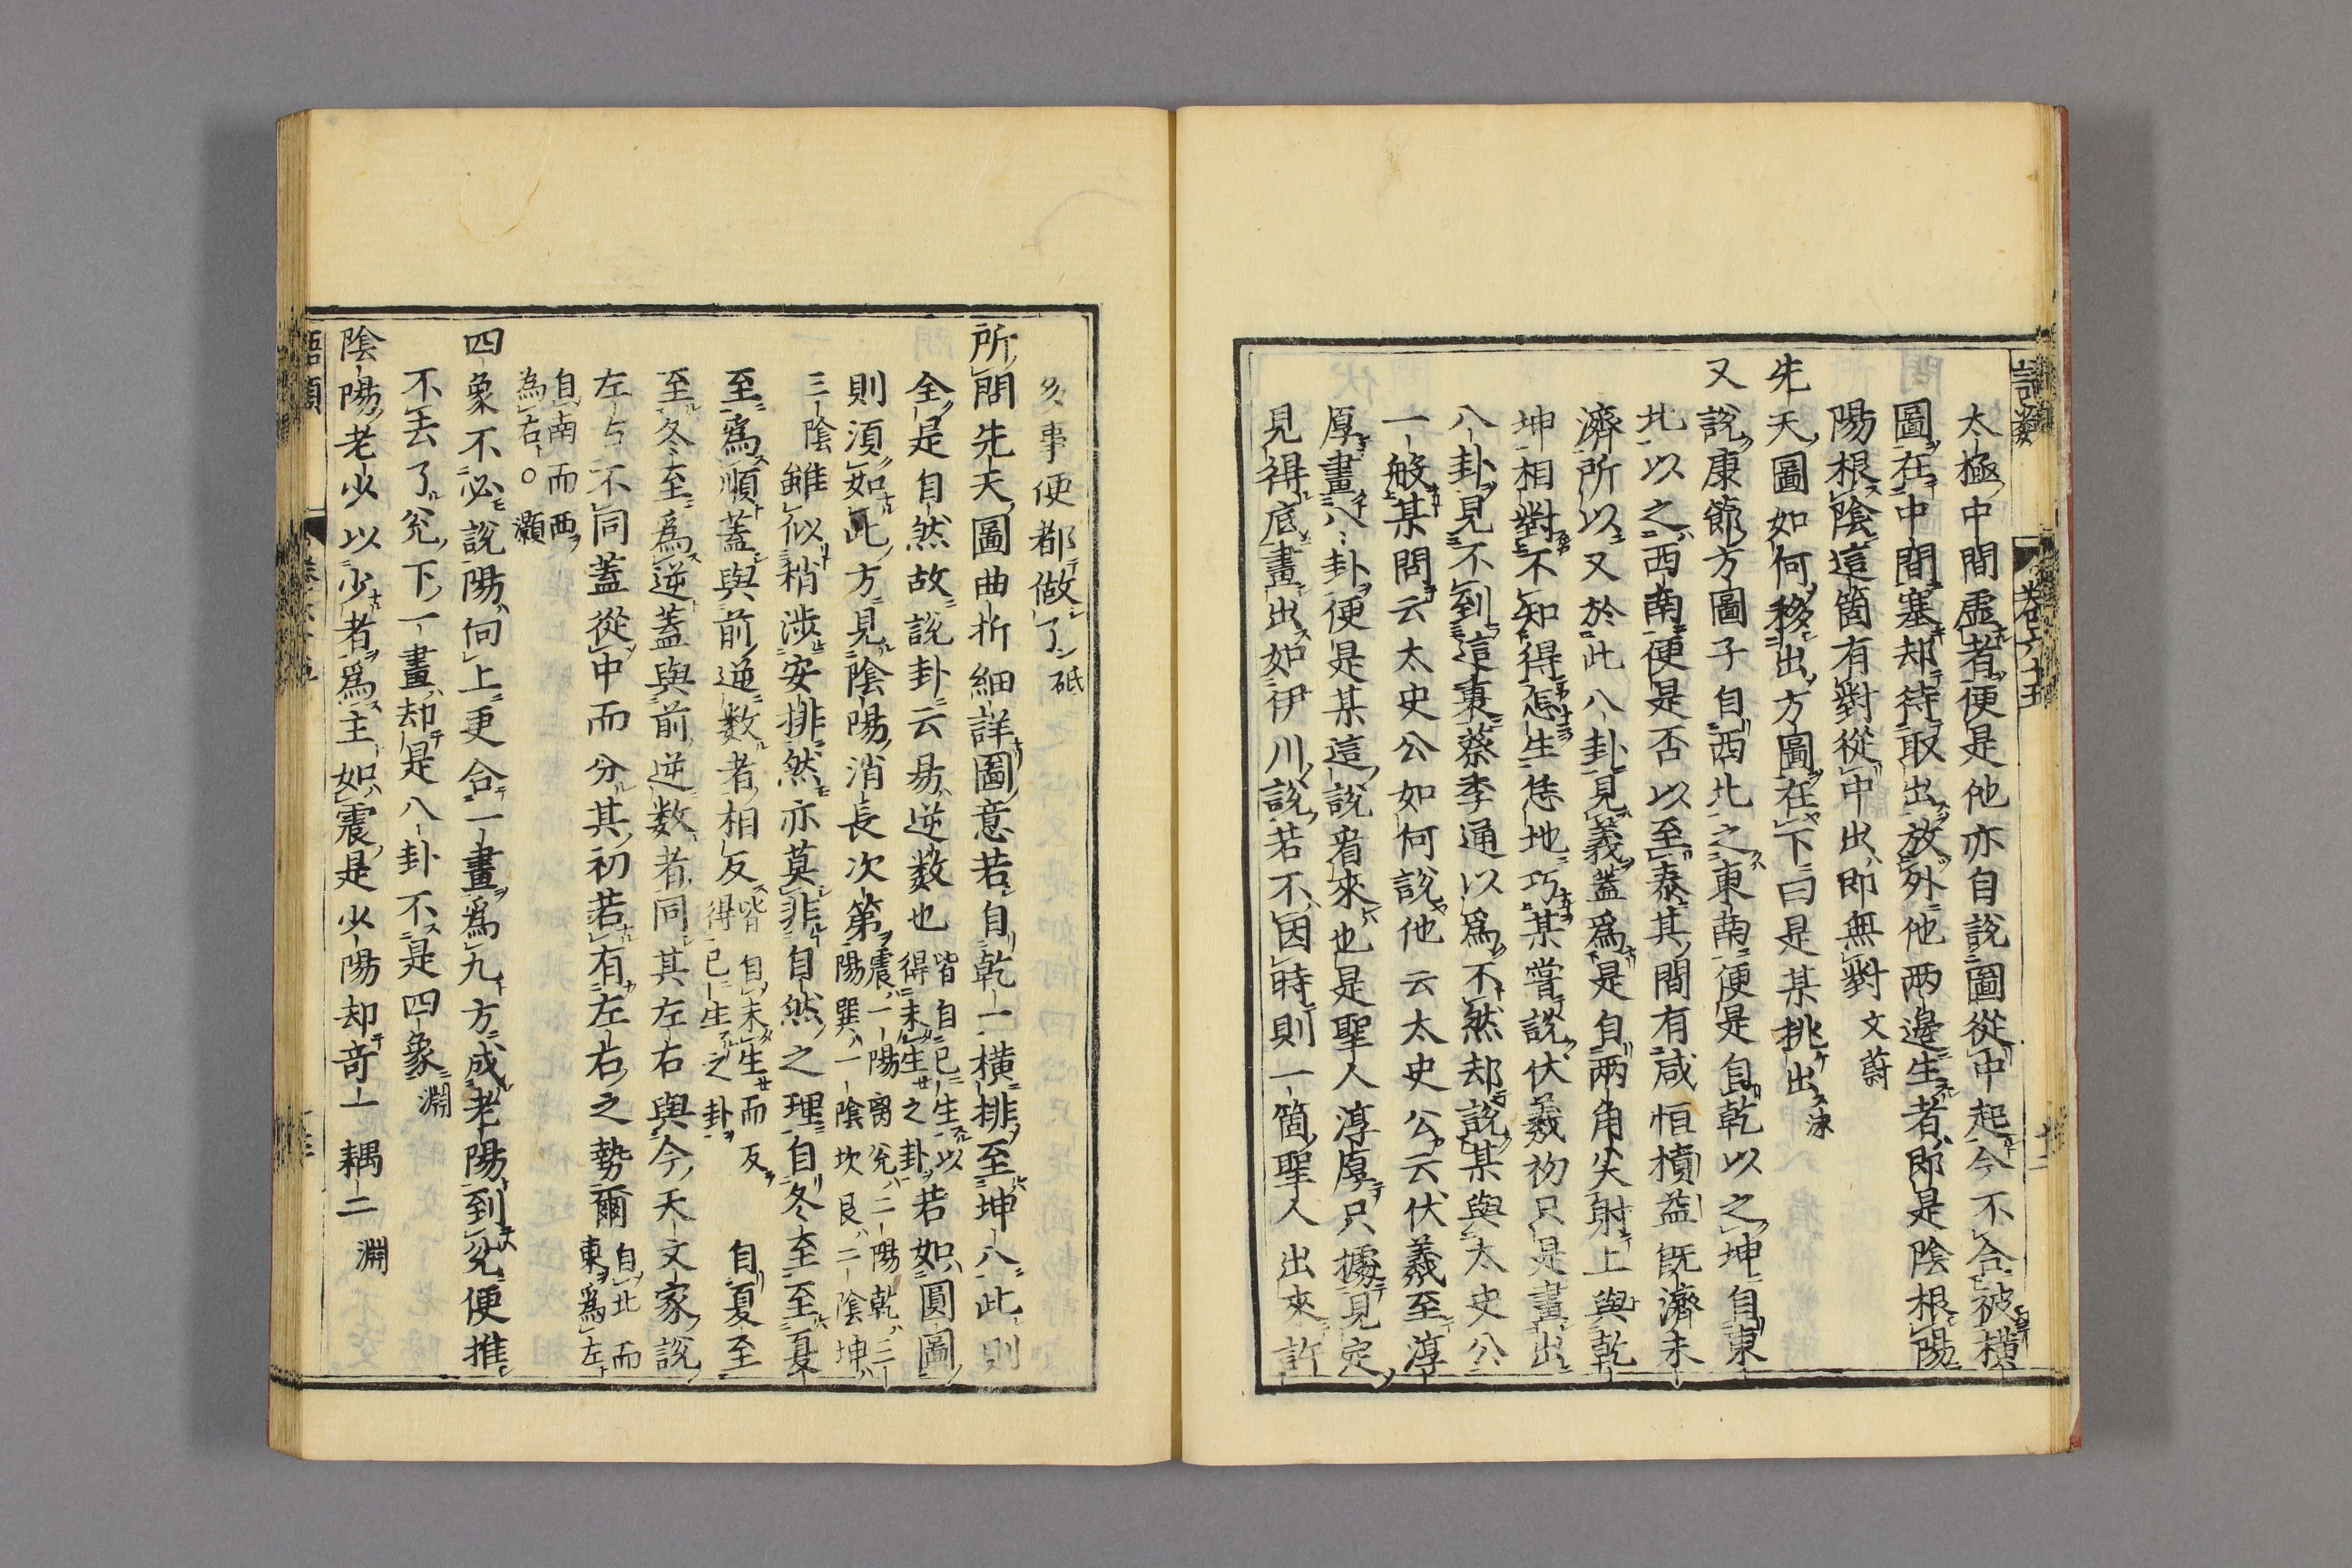 太極中間虛者便是他亦自說圖從中起今不合被橫
圖在中間塞却待取出放外他兩邊生者即是陰根陽
陽根陰這箇有對從中出即無對文蔚
先天圖如何移出方圖在下曰是某挑出泳
又說康節方圖子自西北之東南便是自乾以之坤自東
北以之西南便是否以至泰其間有咸恒損益既濟未
濟所以又於此八卦見義蓋爲是自兩角尖射上與乾
坤相對不知得怎生恁地巧某嘗說伏羲初只是畫出
八卦見不到這裏蔡季通以爲不然却說某與太史公
一般某問云太史公如何說他云太史公云伏羲至淳
厚畫八卦便是某這說看來也是聖人淳厚只據見定
見得底畫出如伊川說若不因時則一箇聖人出來許
多事便都做了砥
所問先天圖曲折細詳圖意若自乾一橫排至坤八此則
全是自然故說卦云易逆数也皆自已生以得未生之卦若如圓圖
則須如此方見陰陽消長次第震一陽離兌二陽乾三陽巽一陰坎艮二陰坤
三陰雖似稍涉安排然亦莫非自然之理自冬至至夏
至爲順蓋與前逆数者相反皆自未生而反得已生之卦自夏至
至冬至爲逆蓋與前逆数者同其左右與今天文家說
左右不同蓋從中而分其初若有左右之勢爾自北而東爲左
自南而西為右○灝
四象不必說陽向上更合一畫爲九方成老陽到兌便推
不去了兌下一畫却是八卦不是四象淵
陰陽老少以少者爲主如震是少陽却奇一耦二淵
語類 卷六十五 十二